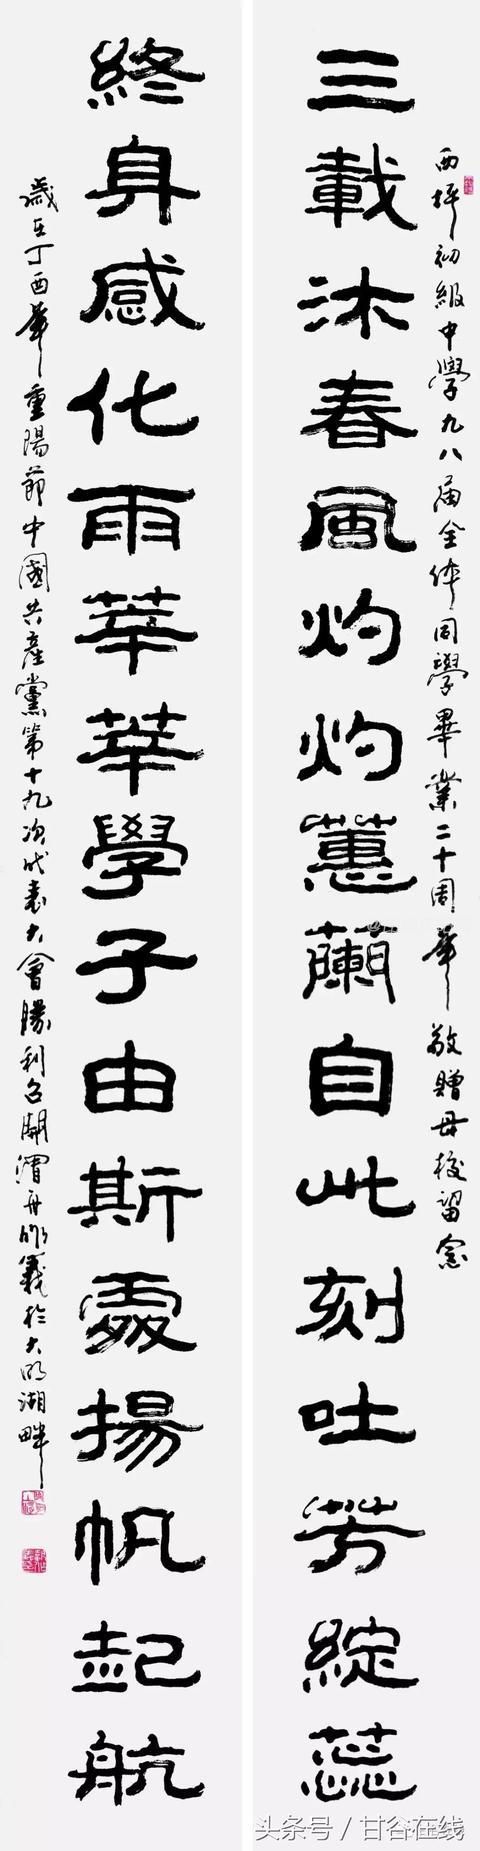 西坪初級中學九八届全体同學畢業二十周年敬贈母校留念
三載沐春風灼灼蕙蘭自此刻吐芳綻蕊
終身感化雨莘莘學子由斯處揚帆起航
歲在丁酉年重陽節中國共產黨第十九次代表大會勝利召開渭舟義於大明湖畔
头条号 / 甘谷在线